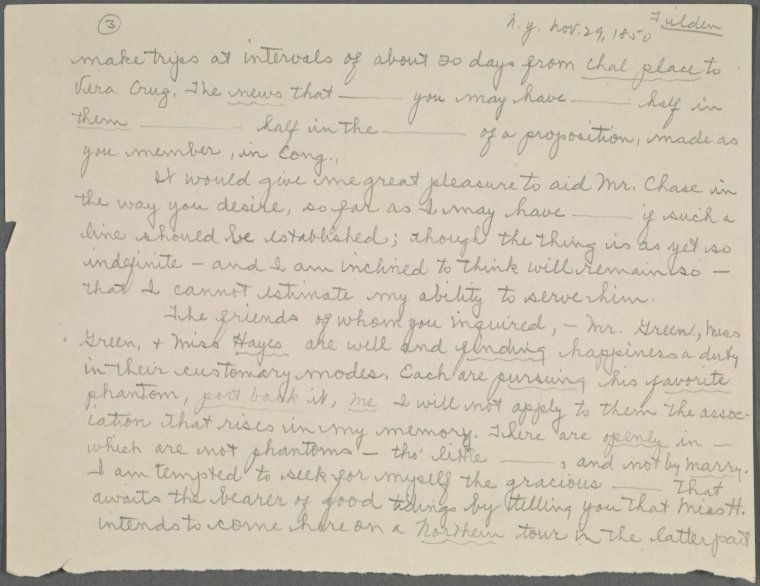 3
N.Y. Nov. 29, 1850 Tilden
make trips at intervals of about 20 days from Chal place to
Vera Cruz. The news that ——— you may have ——— half in
them ——— half in the ——— of a proposition, made as
you member, in Cong.,
It would give me great pleasure to aid Mr. Chase in
the way you desire, so far as I may have ——— if such a
line should be established; though the thing is as yet so
indefinite – and I am inclined to think will remain so –
that I cannot estimate my ability to serve him.
The friends of whom you inquired, – Mr. Green, Miss
Green, & Miss Hayes are well and finding happiness a duty
in their customary modes. Each are pursuing his favorite
phantom, port back it, me I will not apply to them the assoc-
iation that rises in my memory. There are openly in –
which are not phantoms – tho' little ———; and not by marry.
I am tempted to seek for myself the gracious ——— that
awaits the bearer of good tidings by telling you that Miss H.
intends to come here on a Northern tour in the latter part